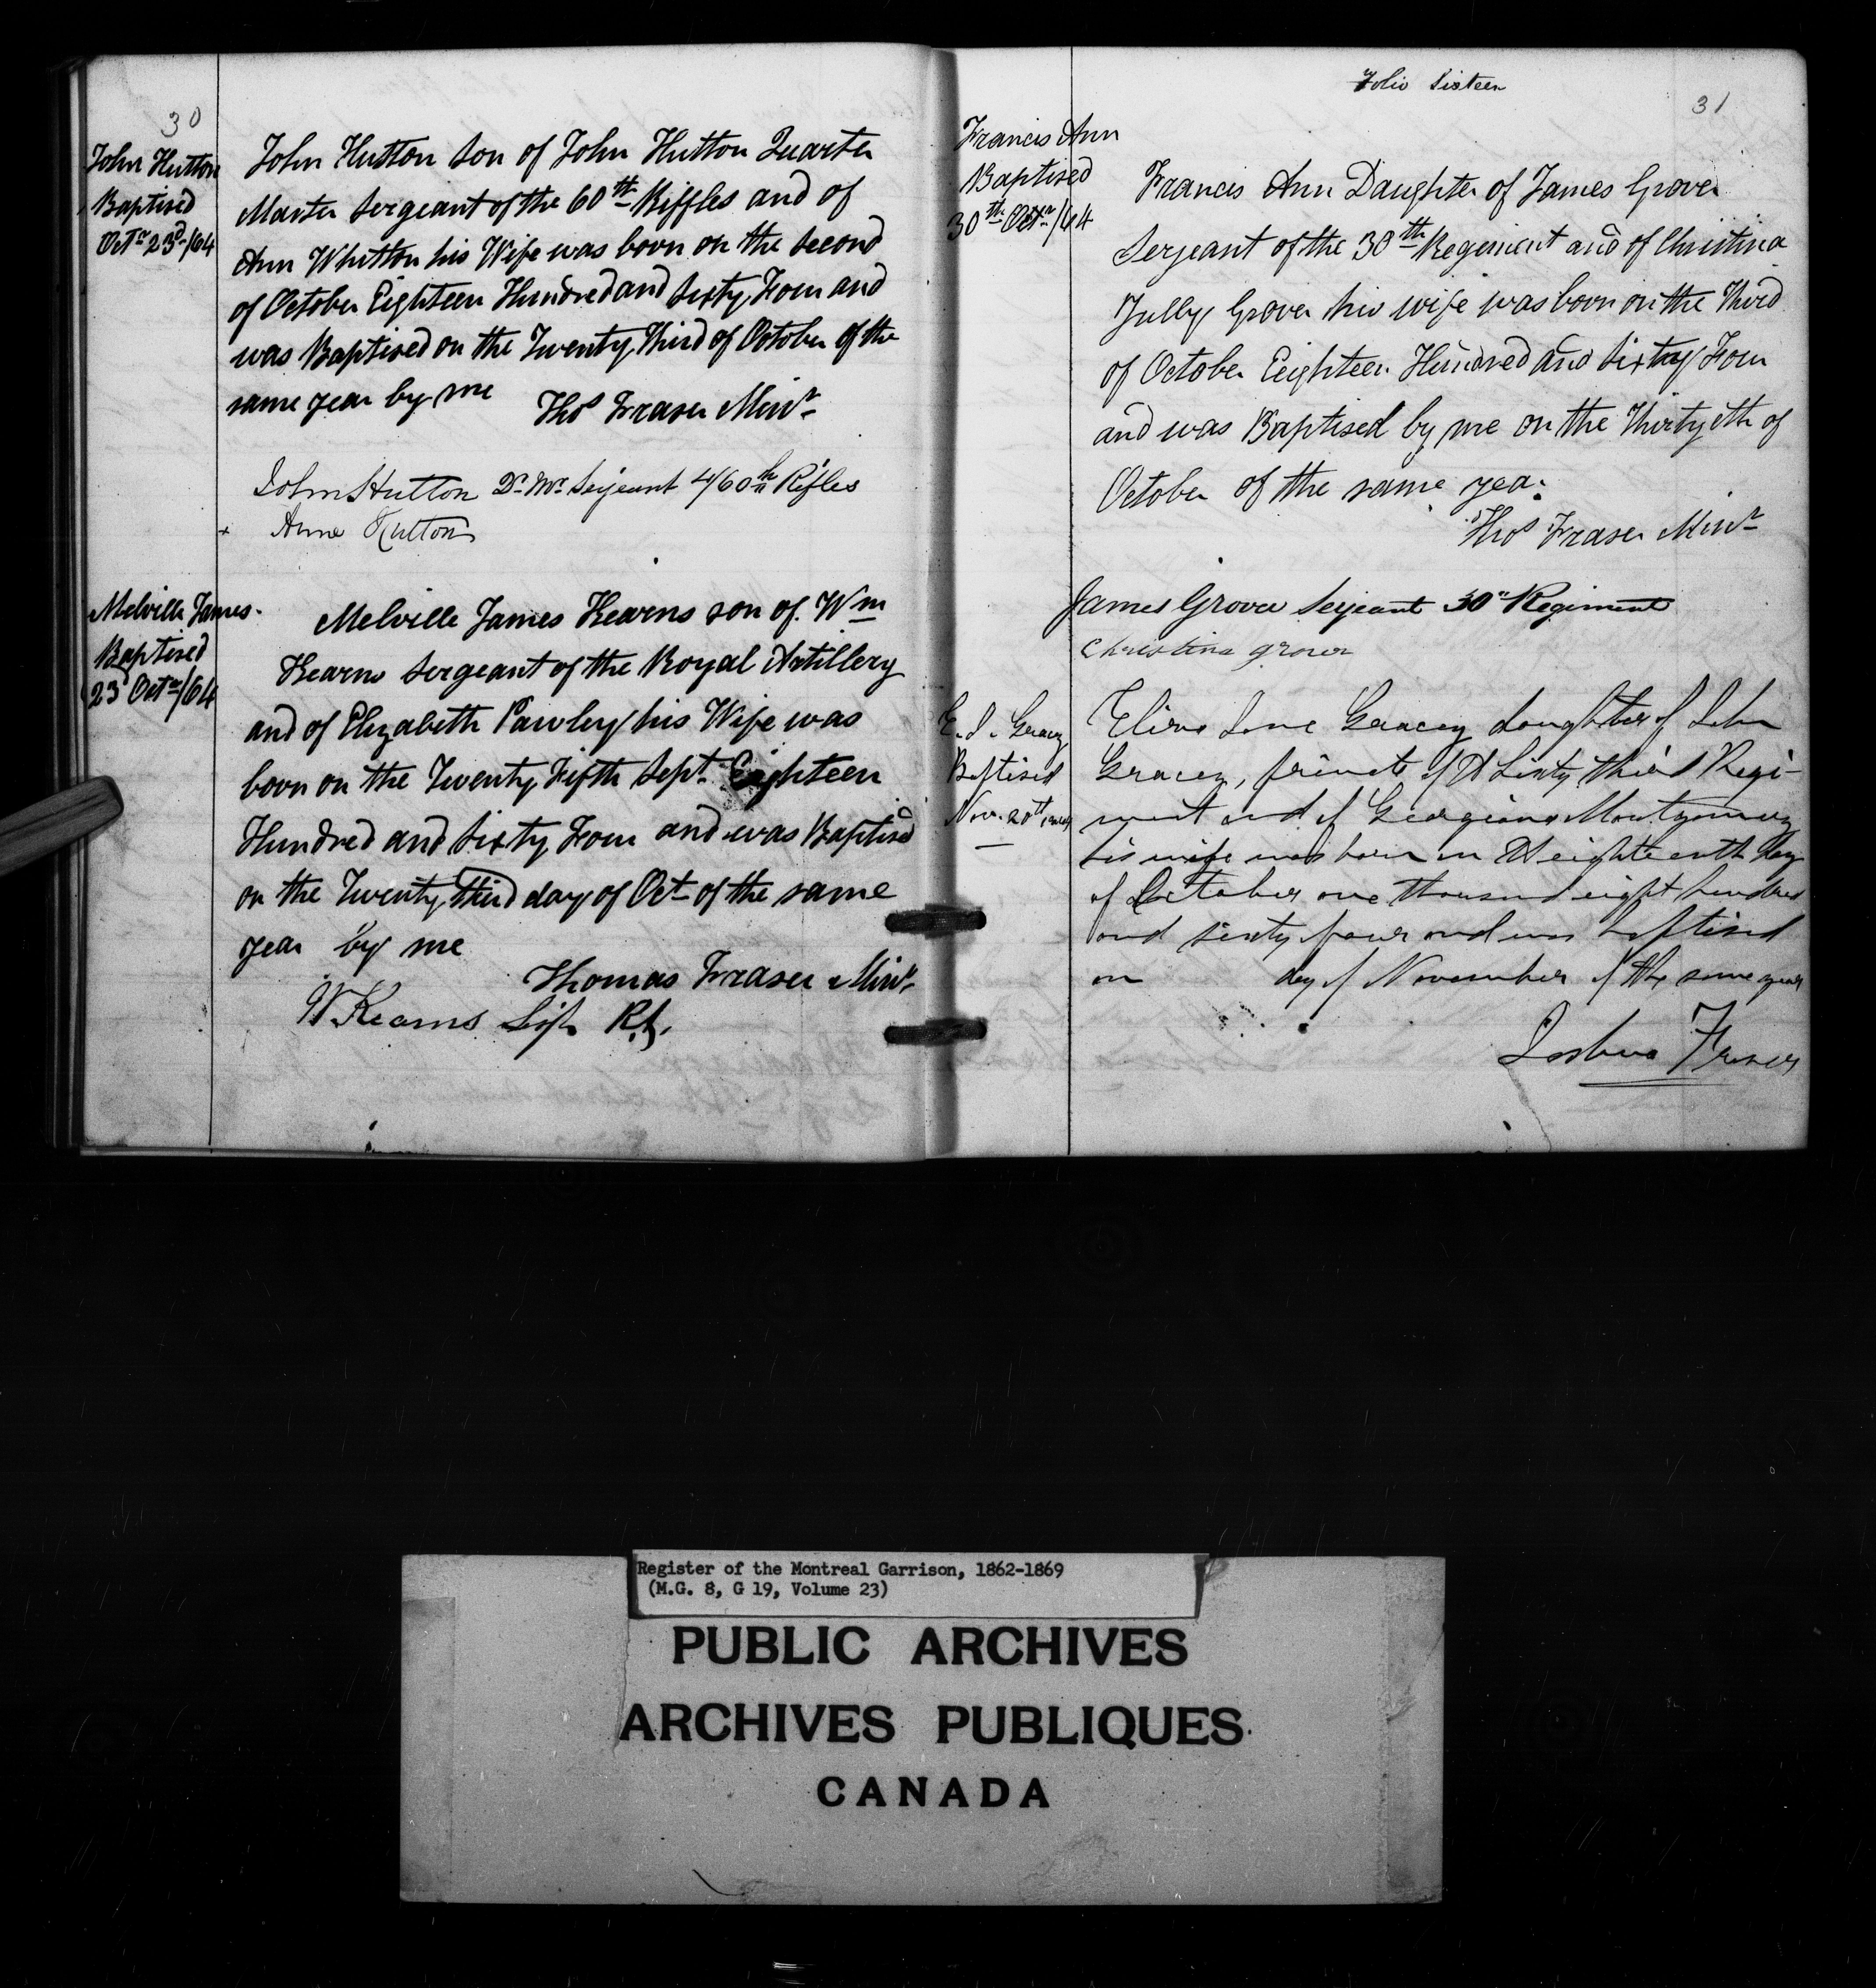 30
John Hutton
Baptised
Octr 23d/64
John Hutton son of John Hutton Quarter
Master Sergeant of the 60th Riffles and of
Ann Whitton his Wife was born on the Second
of October Eighteen Hundred and Sixty Four and
was Baptised on the Twenty Third of October of the
same year by me
Thos Fraser Minr
John Hutton Qr Mr Serjeant 4/60th Rifles
+ Anne Hutton
Melville James
Baptised
23d Octr/64
Melville James Kearns son of Wm
Kearns Sergeant of the Royal Artillery
and of Elizabeth Pawley his Wife was
born on the Twenty Fifth Sept. Eighteen
Hundred and Sixty Four and was Baptised
on the Twenty third day of Oct of the same
year by me
Thomas Fraser Minr
W Kearns Sgt R.A.
Folio Sixteen
31
Francis Ann
Baptised
30th Octr/64
Francis Ann Daughter of James Grover
Serjeant of the 30th Regiment and of Christina
Grover his wife was born on the Third
of October Eeighteen Hundred and Sixty Four
and was Baptised by me on the Thirtyeth of
October of the same year
Thos Fraser Minr
James Grover Serjeant 30th Regiment
Christina grover
E. J. Gracey
Baptised
Nov. 20th
Eliza Jane Gracey daughter of John
Gracey, private of the Sixty third Regi-
ment and of Georgiana Montgomery
his wife was born on the eighteenth day
of October one thousand eight hundred
and sixty four and was baptised
on day of November of the same year
Joshua Fraser
Register of the Montreal Garrison, 1862-1869
(M.G. 8, G 19, Volume 23)
PUBLIC ARCHIVES
ARCHIVES PUBLIQUES
CANADA